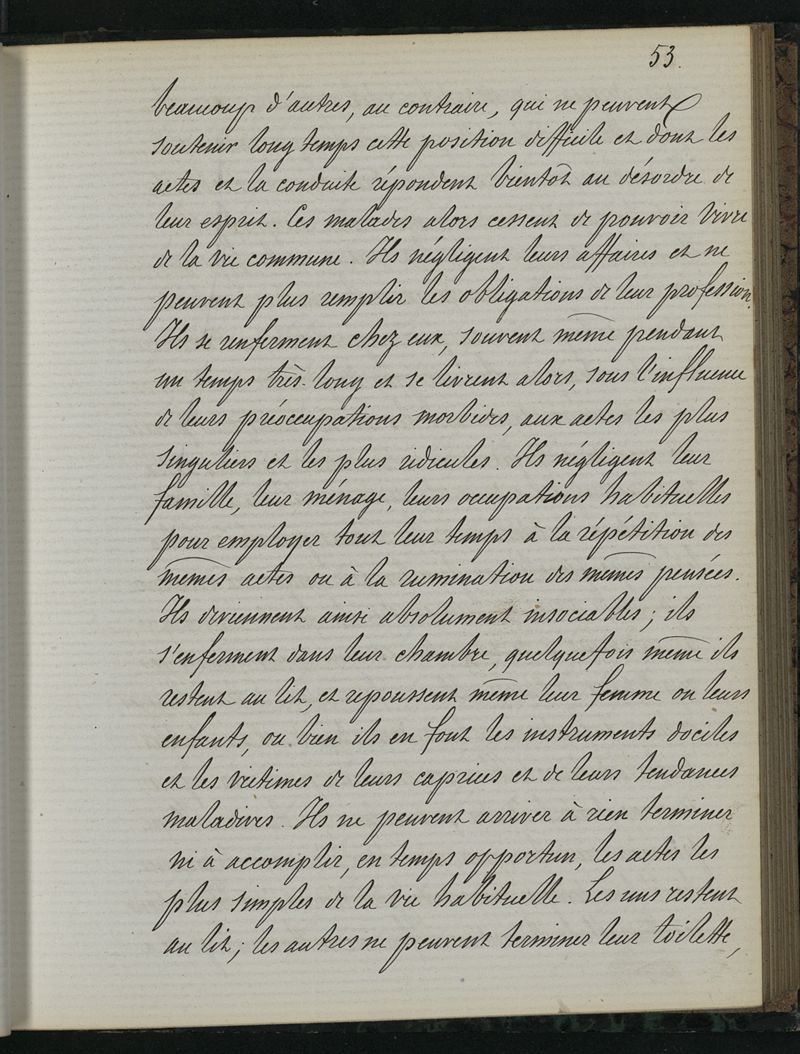 53.
beaucoup d'autres, au contraire, qui ne peuvent
soutenir longtemps cette position difficile et dont les
actes et la conduite répondent bientôt au désordre de
leur esprit. Ces malades alors cessent de pouvoir vivre
de la vie commune. Ils négligent leurs affaires et ne
peuvent plus remplir les obligations de leur profession.
Ils se renferment chez eux, souvent même pendant
un temps très-long et se livrent alors, sous l'influence
de leurs préoccupations morbides, aux actes les plus
singuliers et les plus ridicules. Ils négligent leur
famille, leur ménage, leurs occupations habituelles
pour employer tout leur temps à la répétition des
mêmes actes ou à la rumination des mêmes pensées.
Ils deviennent ainsi absolument insociables ; ils
s'enferment dans leur chambre, quelquefois même ils
restent au lit, et repoussent même leur femme ou leurs
enfants, ou bien ils en font les instruments dociles
et les victimes de leurs caprices et de leurs tendances
maladives. Ils ne peuvent arriver à rien terminer
ni à accomplir, en temps opportun, les actes les
plus simples de la vie habituelle. Les uns restent
au lit ; les autres ne peuvent terminer leur toilette,